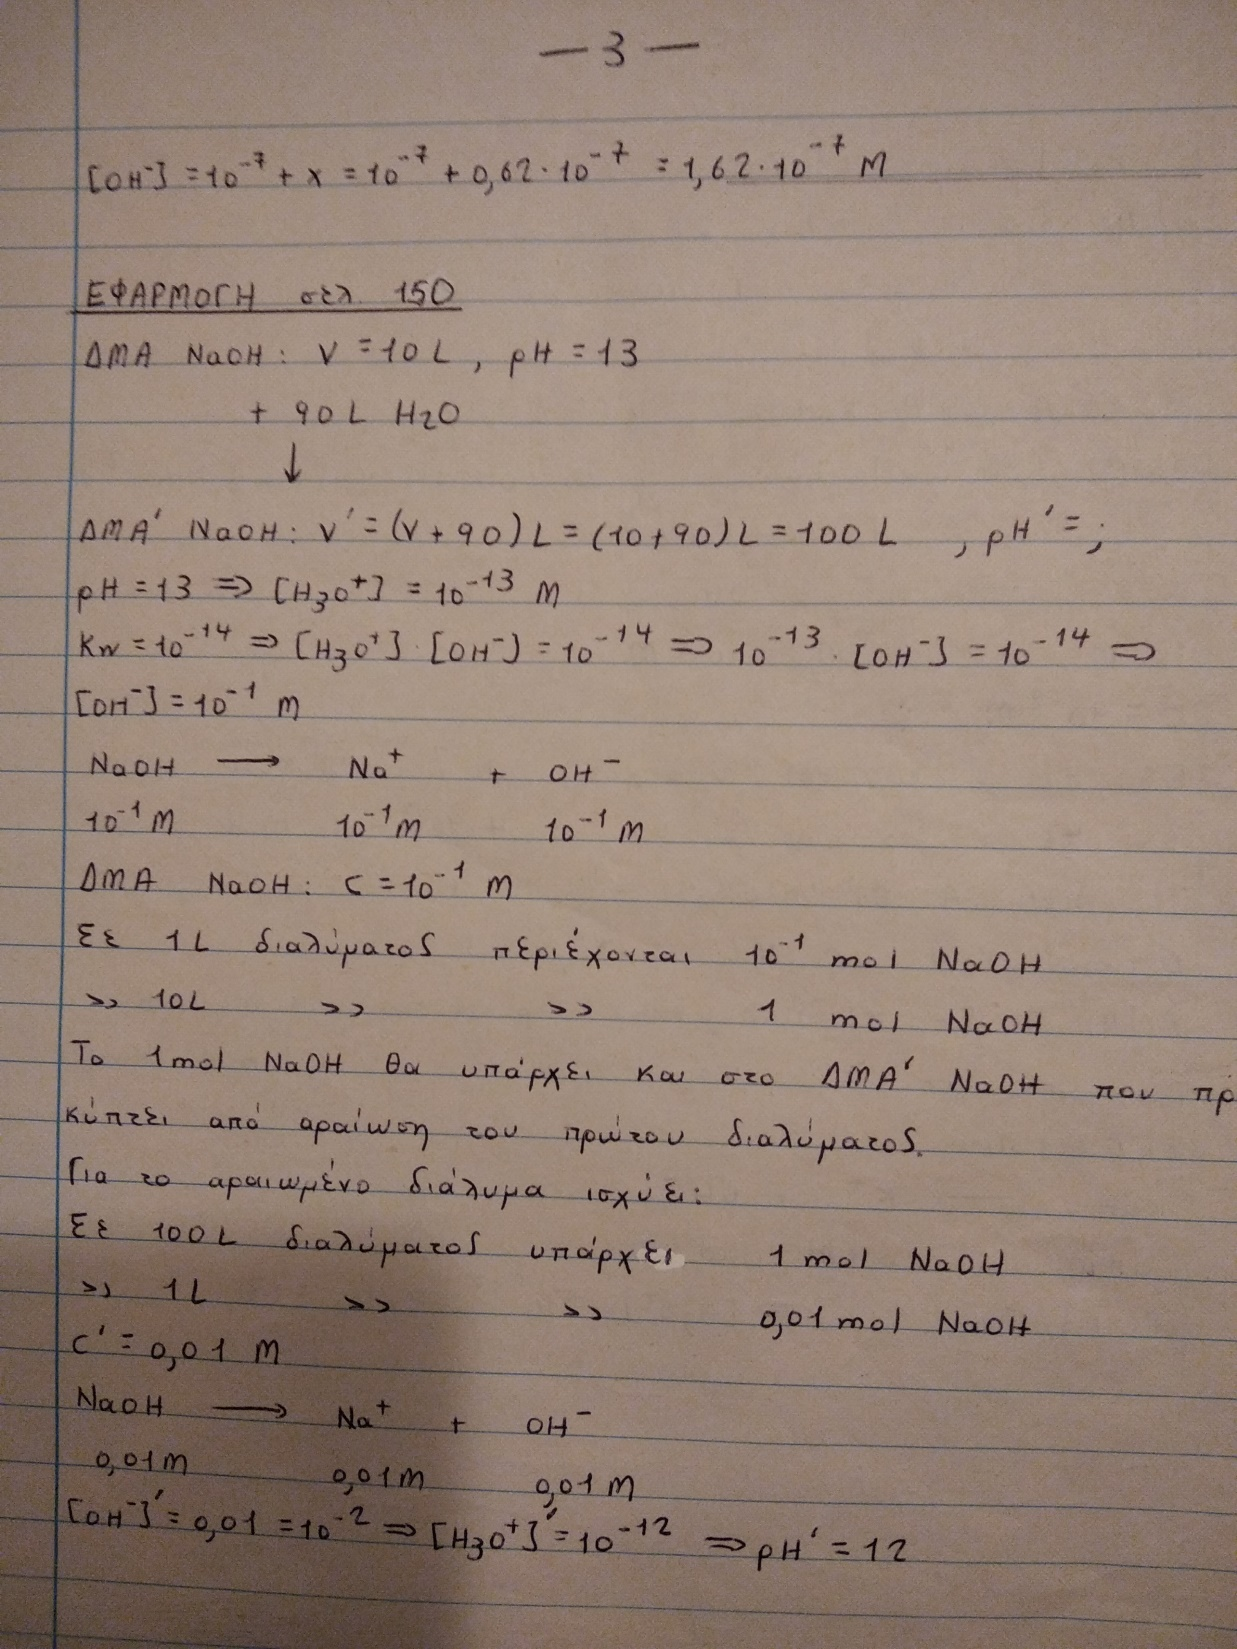 — 3 —
[OH⁻] = 10⁻⁷ + x = 10⁻⁷ + 0,62·10⁻⁷ = 1,62·10⁻⁷ M
ΕΦΑΡΜΟΓΗ σελ 150
ΔΜΑ NaOH: V = 10 L, pH = 13
+ 90 L H₂O
↓
ΔΜΑ' NaOH: V' = (V + 90) L = (10+90) L = 100 L , pH' = ;
pH = 13 ⇒ [H₃O⁺] = 10⁻¹³ M
Kw = 10⁻¹⁴ ⇒ [H₃O⁺]·[OH⁻] = 10⁻¹⁴ ⇒ 10⁻¹³·[OH⁻] = 10⁻¹⁴ ⇒
[OH⁻] = 10⁻¹ M
NaOH ⟶ Na⁺ + OH⁻
10⁻¹ M 10⁻¹ M 10⁻¹ M
ΔΜΑ NaOH: C = 10⁻¹ M
Σε 1L διαλύματος περιέχονται 10⁻¹ mol NaOH
>> 10L >> >> 1 mol NaOH
Το 1mol NaOH θα υπάρχει και στο ΔΜΑ' NaOH που πρ
κύπτει από αραίωση του πρώτου διαλύματος.
Για το αραιωμένο διάλυμα ισχύει:
Σε 100L διαλύματος υπάρχει 1 mol NaOH
>> 1L >> >> 0,01 mol NaOH
C' = 0,01 M
NaOH ⟶ Na⁺ + OH⁻
0,01 M 0,01 M 0,01 M
[OH⁻]' = 0,01 = 10⁻² ⇒ [H₃O⁺]' = 10⁻¹² ⇒ pH' = 12